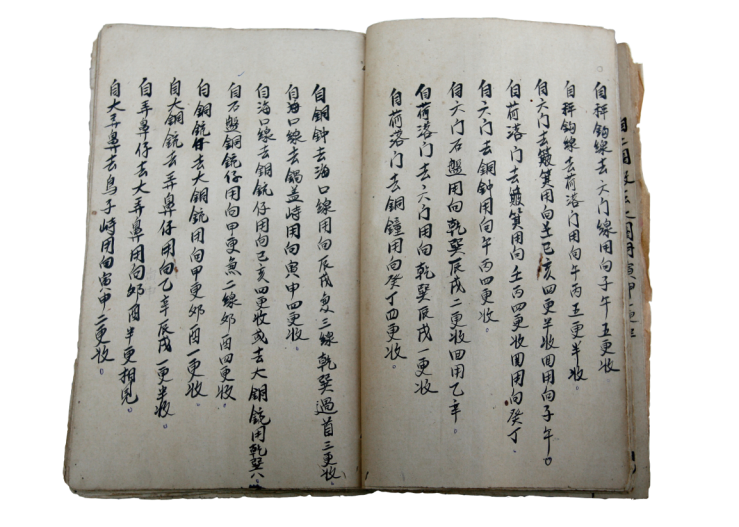 自秤鈎線去六门線用向子午五更收
自秤鈎線去荷落门用向午丙五更半收。
自六门去簸箕用向壬巳亥四更半收回用向子午。
自荷落门去簸箕用向壬丙四更收回用向癸丁。
自六门去銅钟用向午丙四更收。
自六门石盤用向乾巽辰戌二更收回用乙辛。
自荷落门去六门用向乾巽辰戌一更收
自荷落门去銅鐘用向癸丁四更收。
自銅钟去海口線用向辰戌兔三線乾巽過首三更收。
自海口線去鍋盖峙用向寅甲四更收。
自海口線去銅銃仔用向巳亥四更收或去大銅銃用乾巽八
自石盤銅銃仔用向甲更魚二線夘酉四更收。
自銅銃仔去大銅銃用向甲更夘酉一更收。
自大銅銃去弄鼻仔用向乙辛辰戌一更半收。
自弄鼻仔去大弄鼻用向夘酉半更相見。
自大弄鼻去鳥子峙用向寅甲二更收。